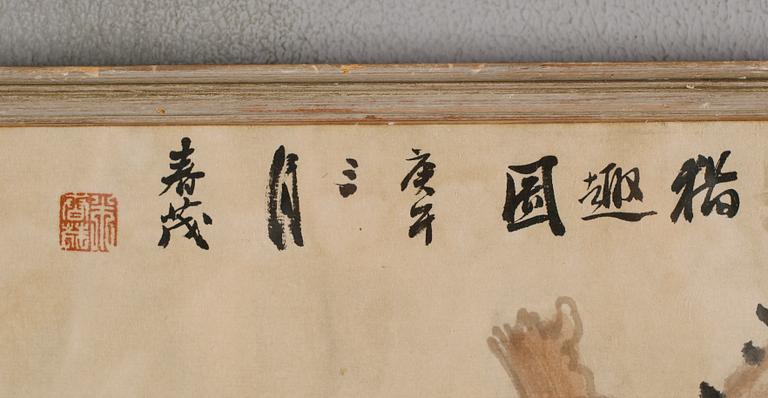 猫趣圖
庚午
三月
春茂